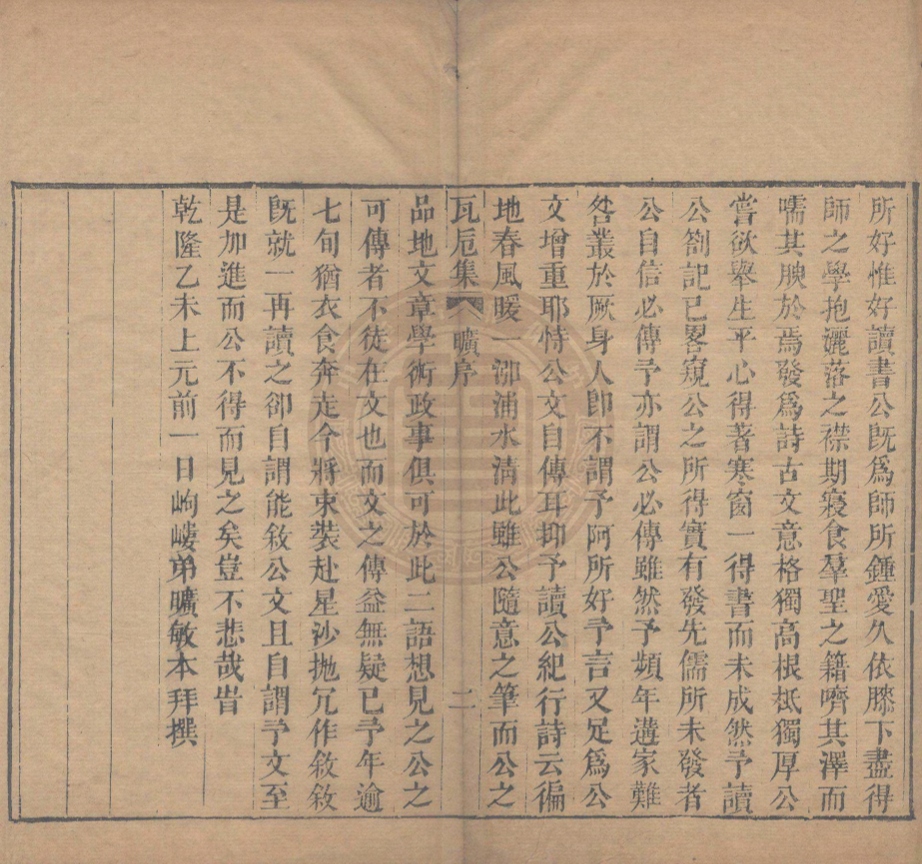 所好惟好讀書公旣爲師所鍾愛久依膝下盡得
師之學抱灑落之襟期寢食羣聖之籍嚌其澤而
嚅其腴於焉發爲詩古文意格獨高根柢獨厚公
嘗欲舉生平心得著寒窗一得書而未成然予讀
公劄記已畧窺公之所得實有發先儒所未發者
公自信必傳予亦謂公必傳雖然予頻年遘家難
咎叢於厥身人卽不謂予阿所好予言又足爲公
文增重耶恃公文自傳耳抑予讀公紀行詩云徧
地春風暖一泖浦水清此雖公隨意之筆而公之
瓦卮集 曠序 二
品地文章學術政事俱可於此二語想見之公之
可傳者不徒在文也而文之傳益無疑已予年逾
七旬猶衣食奔走今將束裝赴星沙抛冗作敘敘
旣就一再讀之卻自謂能敘公文且自謂予文至
是加進而公不得而見之矣豈不悲哉旹
乾隆乙未上元前一日岣嶁弟曠敏本拜撰